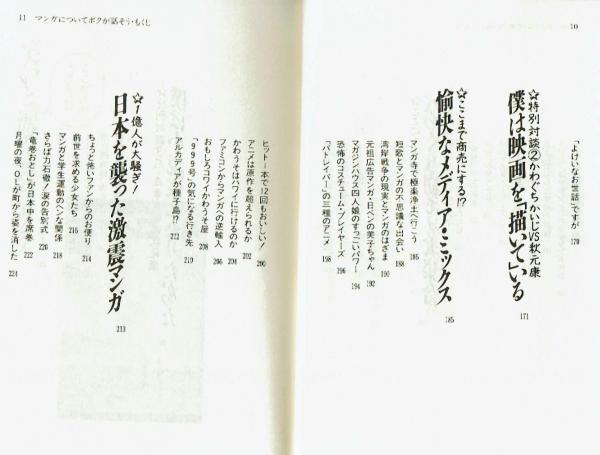 10
「よけいなお世話」ですが
170
☆特別対談②かわぐちかいじVS秋元康
僕は映画を「描いて」いる
171
☆ここまで商売にする!?
愉快なメディア・ミックス
185
マンガ寺で極楽浄土へ行こう
186
短歌とマンガの不思議な出会い
188
湾岸戦争の現実とマンガのはざま
190
元祖広告マンガ・日ペンの美子ちゃん
192
マガジンハウス四人娘のすっごいパワー
194
恐怖のコスチューム・プレイヤーズ
196
「パトレイバー」の三種のアニメ
198
11 マンガについてボクが話そう・もくじ
ヒット一本で12回もおいしい！
200
アニメは原作を超えられるか
202
かわうそはハワイに行けるのか
204
ファミコンからマンガへの逆輸入
206
おもしろコワイかわうそ屋
208
「999号」の気になる行き先
210
アルカディアが種子島!?
212
☆1億人が大騒ぎ！
日本を襲った激震マンガ
213
ちょっと怖いファンからのお便り
214
前世を求める少女たち
216
マンガと学生運動のヘンな関係
218
さらば力石徹！涙の告別式
220
「竜巻おとし」が日本中を席巻
222
月曜の夜、OLが町から姿を消した
224